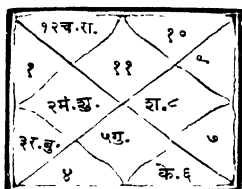 १२च.रा. १०
१ ११ ९
२मं.शु. श.८
३र.बु. ५गु. ७
४ के.६